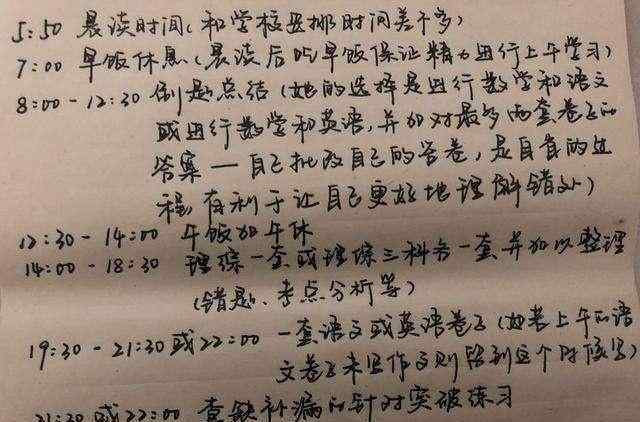 5:50 晨读时间(和学校安排时间差不多)
7:00 早饭休息(晨读后吃早饭保证精力进行上午学习)
8:00-12:30 例题总结(她的选择是进行数学和语文
或进行数学和英语,并加对最多两套卷子的
答案——自己批改自己的答卷,是自省的过
程,有利于让自己更好地理解错处)
12:30-14:00 午饭加午休
14:00-18:30 理综一套或理综三科各一套并加以整理
(错题、考点分析等)
19:30-21:30或22:00 一套语文或英语卷子(如果上午的语
文卷子未写作文则留到这个时候写)
21:30或22:00 查缺补漏的针对突破练习